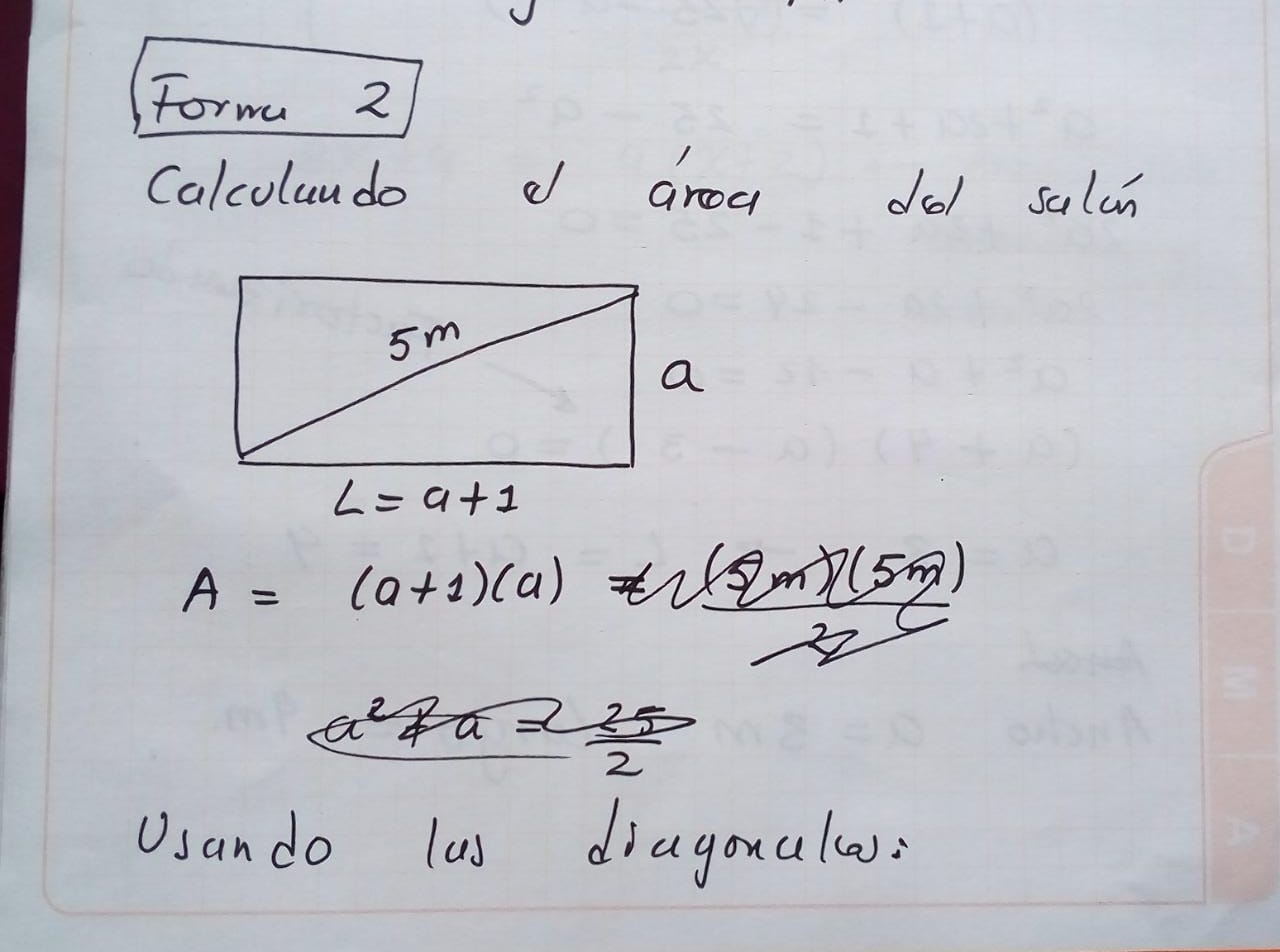 Forma 2
Calculando el área del salón
5m
a
L = a+1
A = (a+1)(a) = (5m)(5m)
2
a² + a = 25
2
Usando las diagonales:
D
M
A